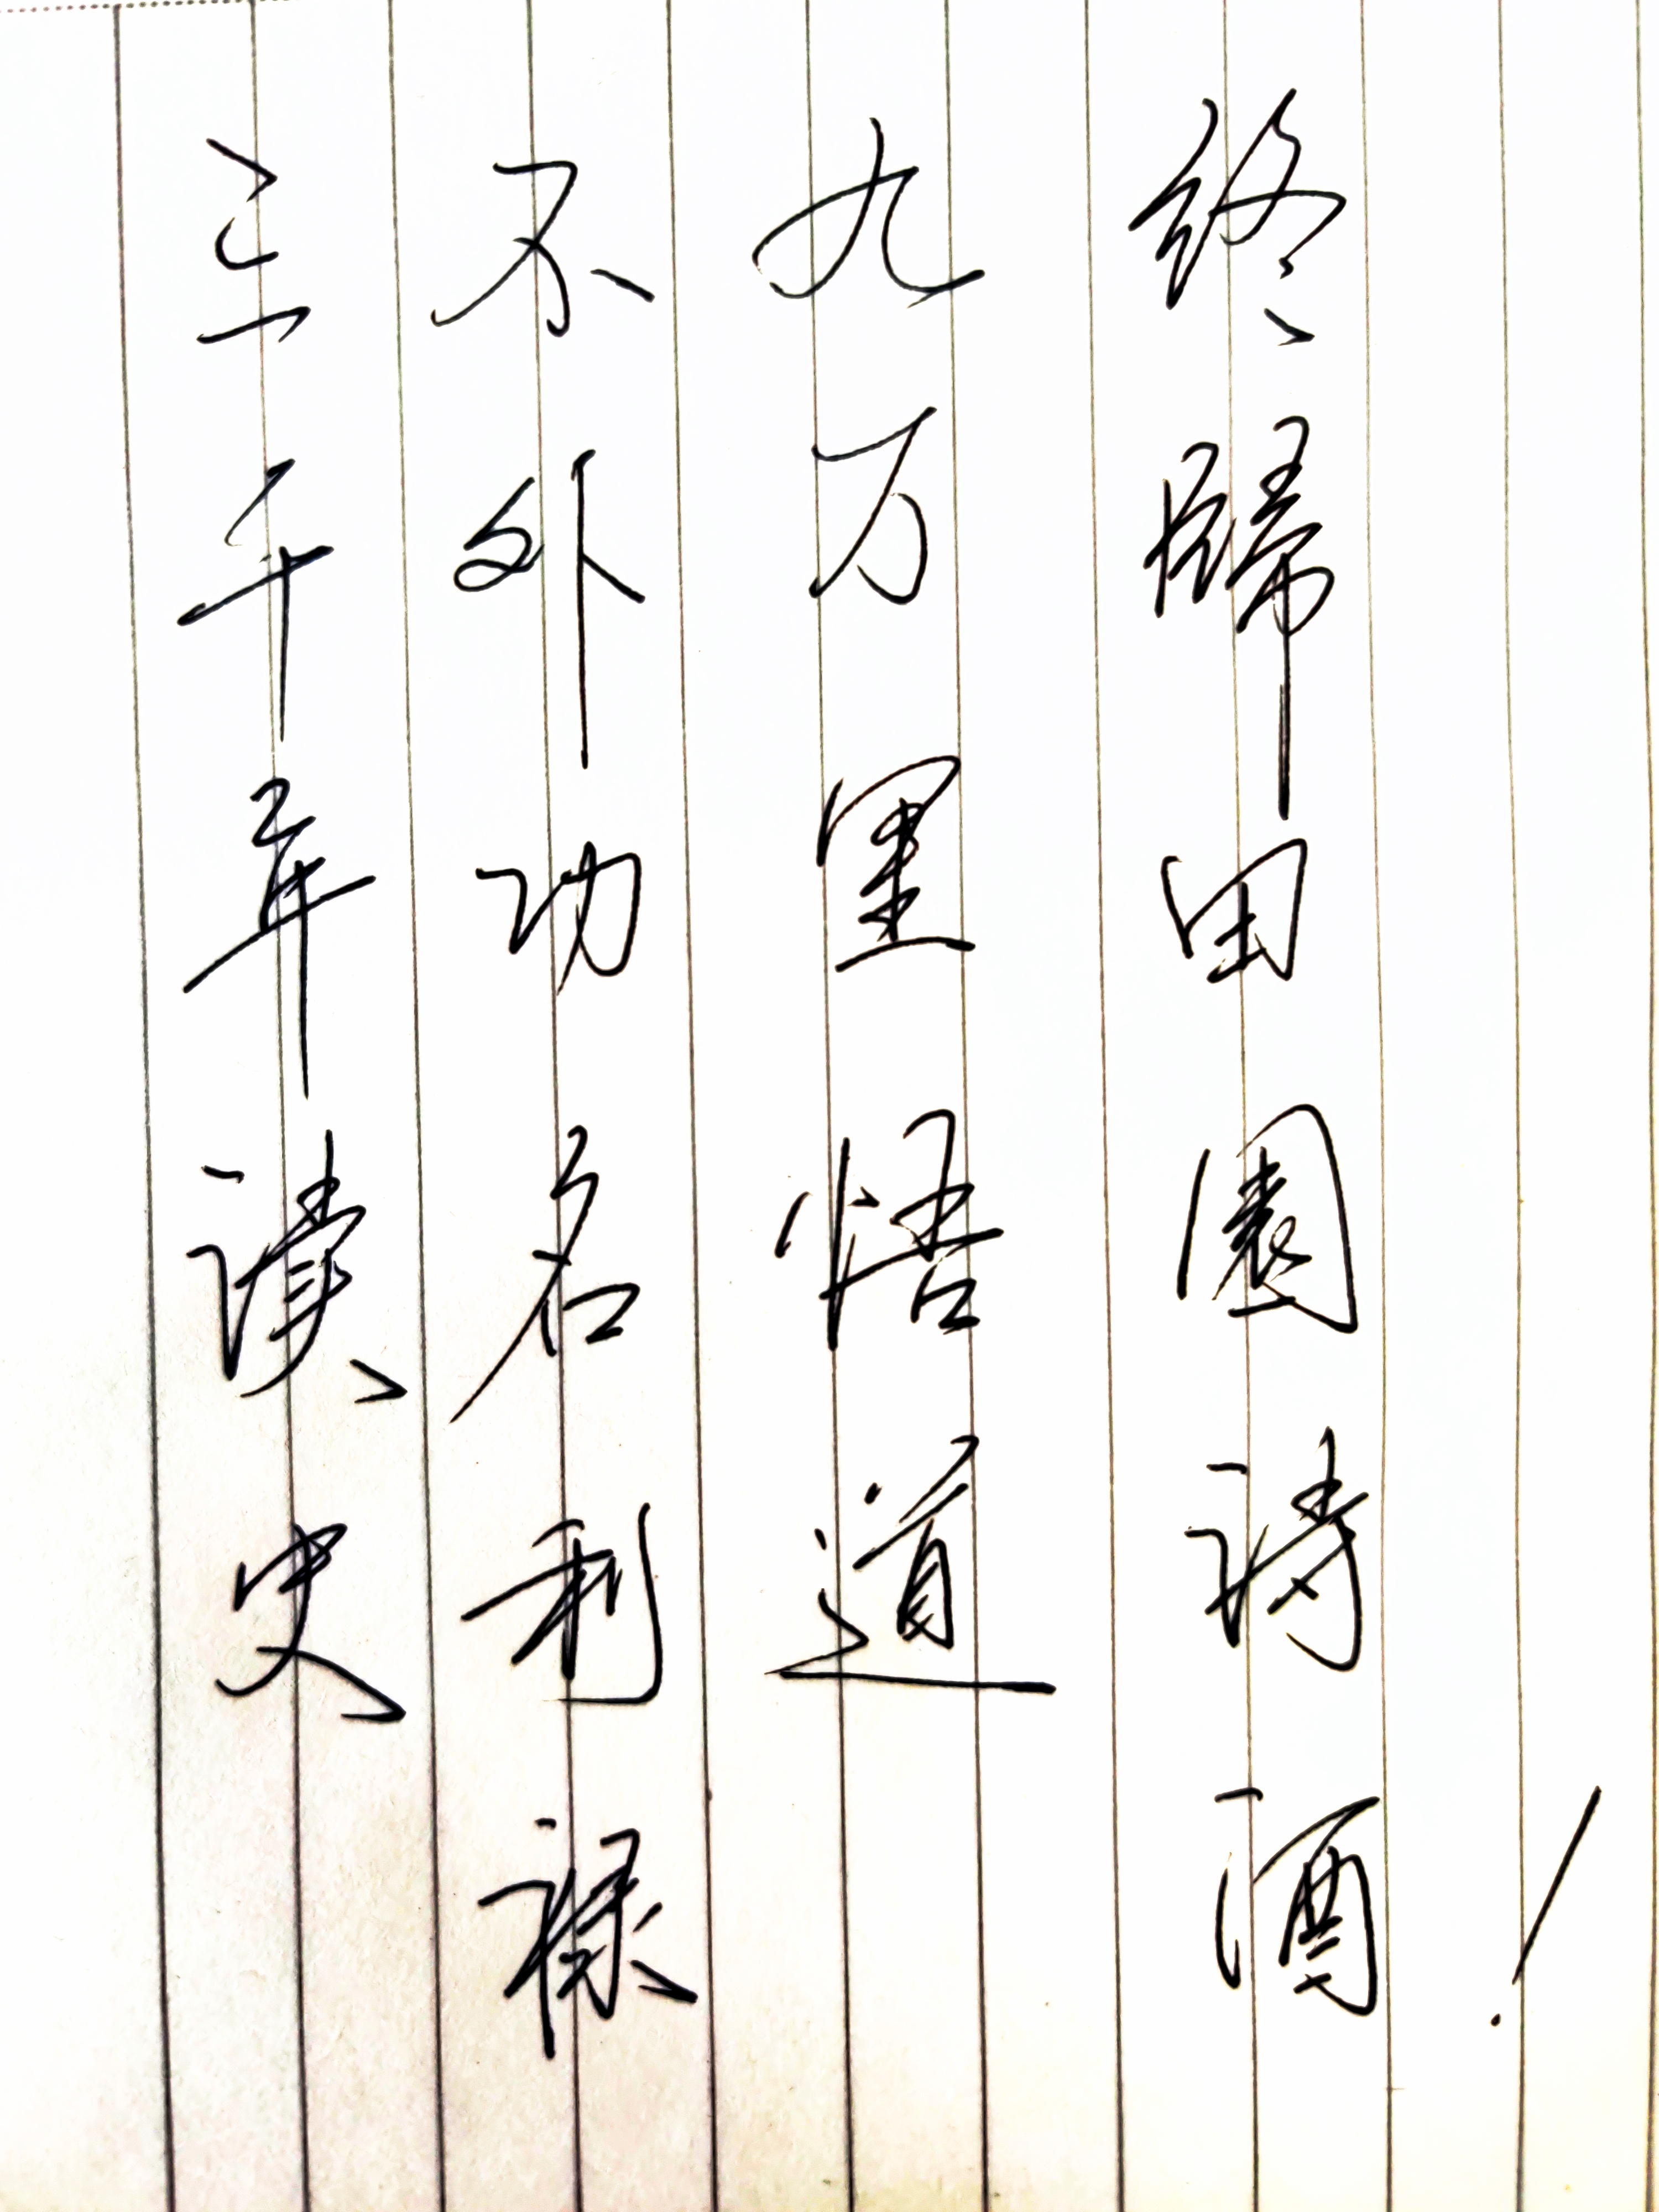 三千年读史
不外功名利禄
九万里悟道
终歸田園诗酒!